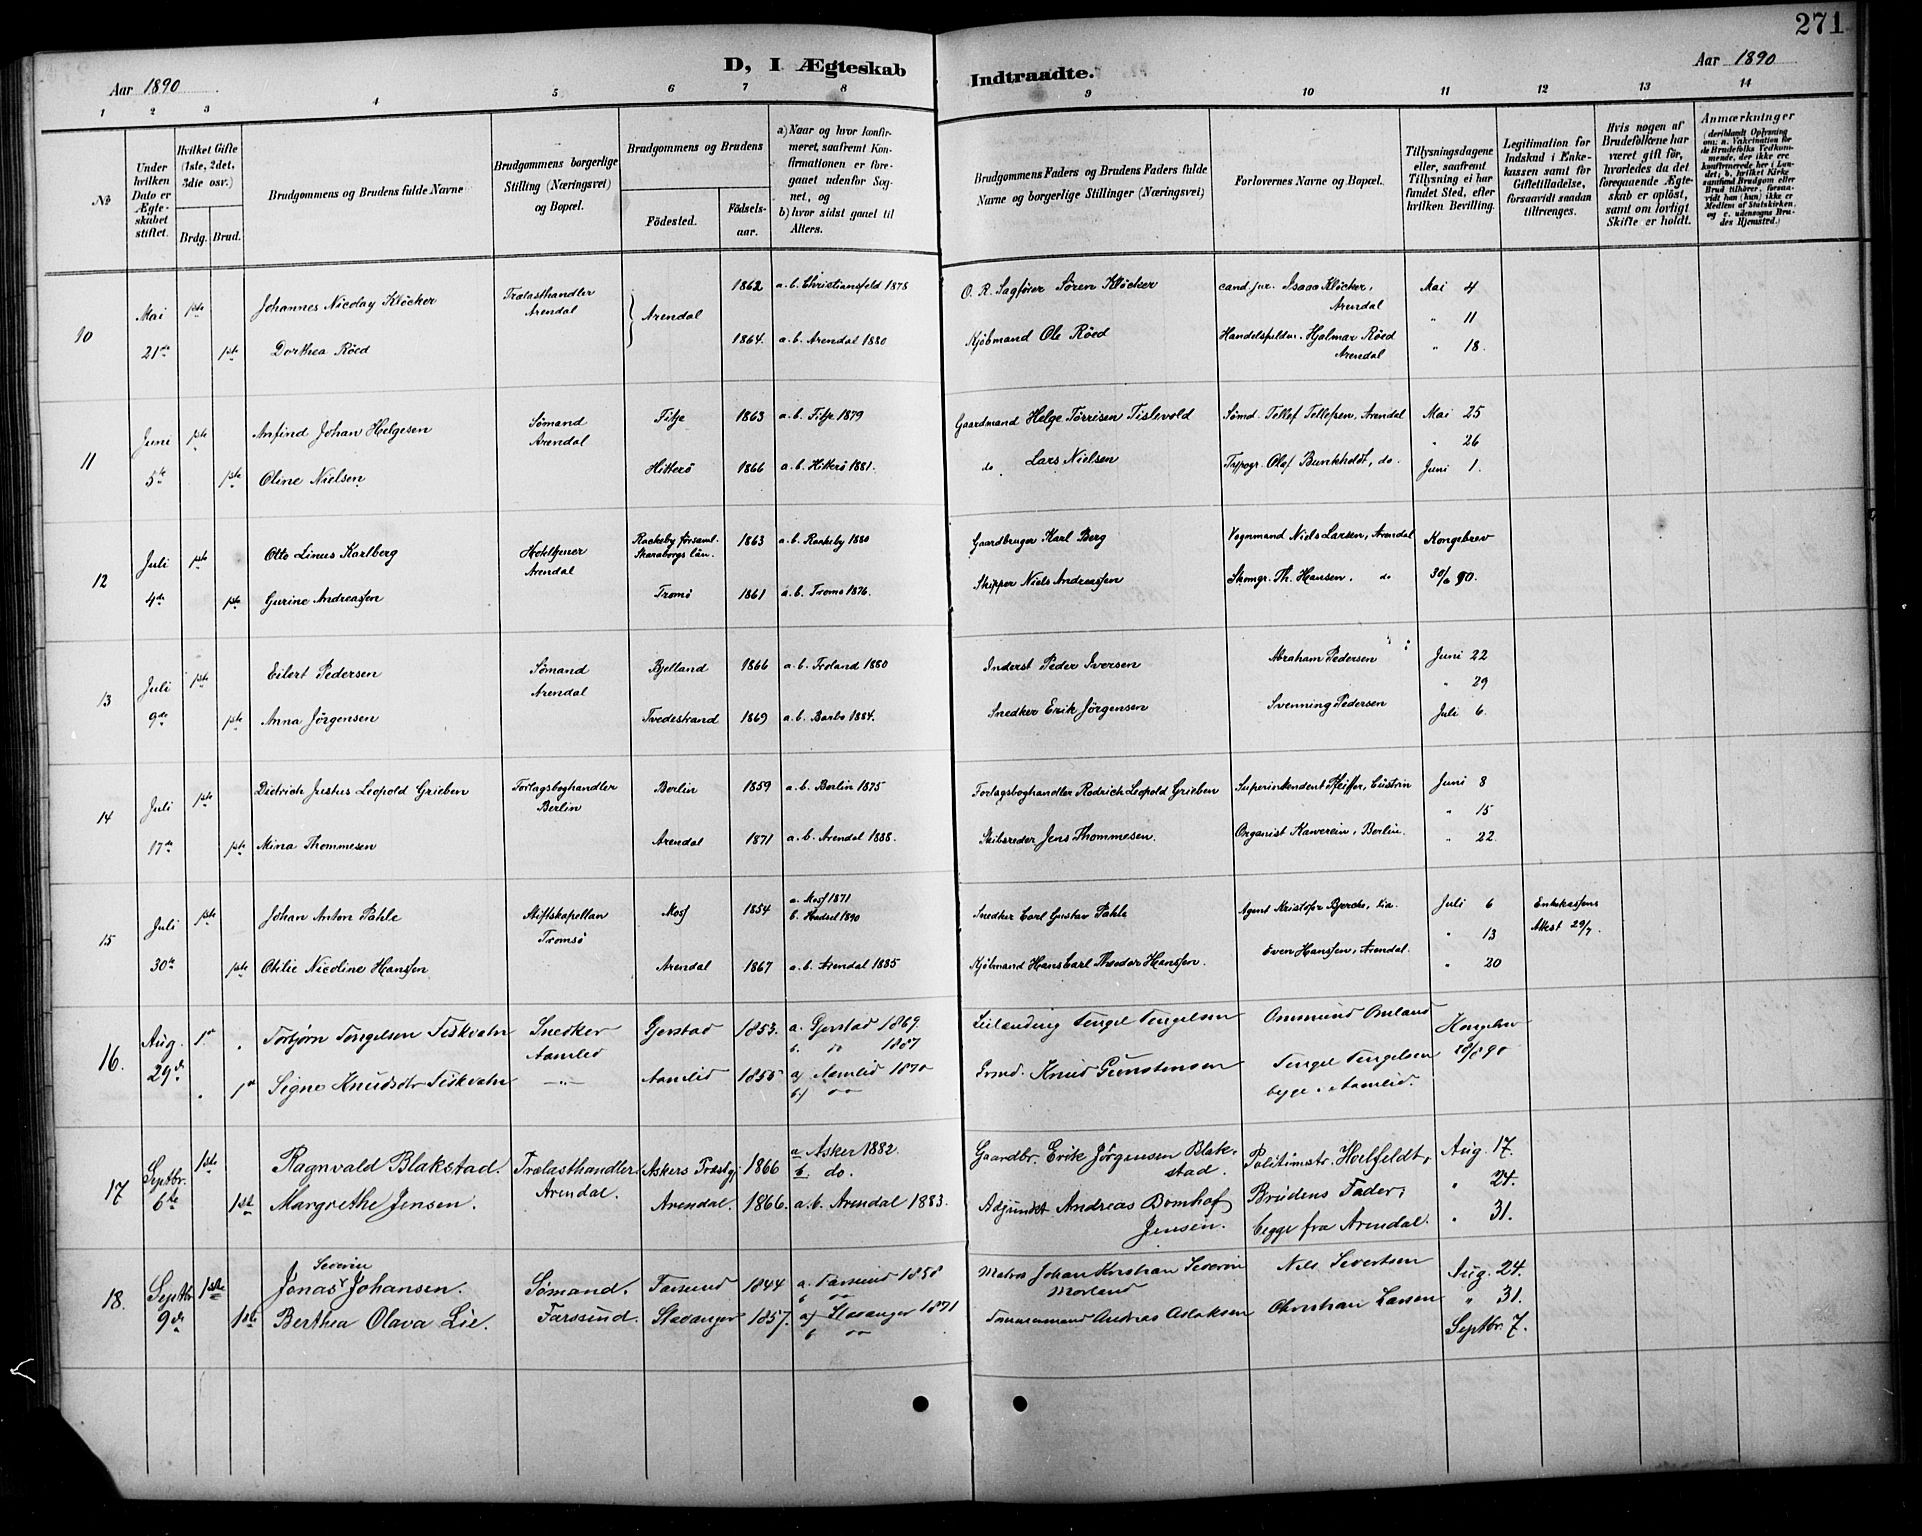 271
Aar 1890
D, I Ægteskab
Indtraadte.
Aar 1890
1 2 3 4 5 6 7 8 9 10 11 12 13 14
No
Under hvilken Dato er Ægteskabet stiftet.
Hvilket Gifte (1ste, 2det, 3die osv.)
Brdg. Brud.
Brudgommens og Brudens fulde Navne
Brudgommens borgerlige Stilling (Næringsvei) og Bopæl.
Brudgommens og Brudens
Födested.
Födselsaar.
a) Naar og hvor konfirmeret, saafremt Konfirmationen er foregaaet udenfor Sognet, og
b) hvor sidst gaaet til Alters.
Brudgommens Faders og Brudens Faders fulde Navne og borgerlige Stillinger (Næringsvei)
Forlovernes Navne og Bopæl.
Tillysningsdagene eller, saafremt Tillysning ei har fundet Sted, efter hvilken Bevilling.
Legitimation for Indskud i Enkekassen samt for Giftetilladelse, forsaavidt saadan tiltrænges.
Hvis nogen af Brudefolkene har været gift för, hvorledes da det foregaaende Ægteskab er oplöst, samt om lovligt Skifte er holdt.
Anmærkninger
10 Mai 21de 1ste Johannes Nicolay Klöcker Trælasthandler Arendal Arendal 1862 a.b. Christiansfeld 1878 O. R. Sagförer Sören Klöcker cand. jur. Isaac Klöcker, Arendal Mai 4
" 11
1ste Dorthea Röed 1864. a.b. Arendal 1880 Kjöbmand Ole Röed Hjalmar Röed Arendal " 18.
11 Juni 5te 1ste Anfind Johan Helgesen Sömand Arendal Fitje 1863 a.b. Fitje 1879 Gaardmand Helge Törrisen Tislevold Sömd. Tellef Tellefsen, Arendal Mai 25
" 26
1ste Oline Nielsen Hitterö 1866 a.b. Hitterö 1881. do Lars Nielsen Typogr. Olaf Bunkholdt, do. Juni 1.
12 Juli 4de 1ste Otto Linus Karlberg Arendal Rackeby församl. Skaraborgs län. 1863 a.b. Rackeby 1880 Gaardbruger Karl Berg Vognmand Niels Larsen, Arendal Kongebrev
1ste Gurine Andreassen Tromö 1861 a.b. Tromö 1876. Skipper Niels Andreassen Skomgr. Th. Hansen. do 30/6 90.
13 Juli 9de 1ste Eilert Pedersen Sömand Arendal Bjelland 1866 a.b. Froland 1880 Inderst Peder Iversen Abraham Pedersen Juni 22
" 29
1ste Anna Jörgensen Tvedestrand 1869 a.b. Barbo 1884. Snedker Erik Jörgensen Svenning Pedersen Juli 6.
14 Juli 17de 1ste Dietrich Justus Leopold Grieben Forlagsboghandler Berlin Berlin 1859 a.b. Berlin 1875 Forlagsboghandler Rodrich Leopold Grieben Superintendent Pfeiffer, Cüstrin Juni 8
" 15
1ste Mina Thommesen Arendal 1871 a.b. Arendal 1888. Skibsreder Jens Thommesen. Organist Kawerein, Berlin. " 22.
15 Juli 30te 1ste Johan Anton Pahle Stiftskapellan Tromsö Moss 1854 a. Moss 1871 b. Hadsel 1890 Snedker Carl Gustav Pahle Agent Kristofer Juli 6 Enkekassens Attest 29/7.
" 13
1ste Otilie Nicoline Hanssen Arendal 1867 a.b. Arendal 1885 Kjöbmand Hans Carl Theodor Hanssen. Even Hanssen, Arendal. " 20
16. Aug. 29de 1ste Torbjørn Tengelsen Tiskvatn Snedker Aamlid Gjerstad 1853. a. Gjerstad 1869. b. do 1887 Leilænding Tengel Tengelsen Ommund Omland Kongebrev
1ste Signe Knudsdtr Tiskvatn —"— Aamlid 1855 a) Aamlid 1870 b) do Knud Gunstensen Tengel Tengelsen begge i Aamlid.
17 Septbr. 6te 1ste Ragnvald Blakstad. Trælasthandler. Arendal. Askers Præstgj 1866 a Asker 1882. b. do. Gaardbr. Erik Jörgensen Blakstad. Politimstr. Holfeldt, Aug. 17.
" 24.
1ste Margrethe Jensen. Arendal. 1866. a.b. Arendal 1883. Adjunkt Andreas Bomhof Jensen. Brudens Fader, begge fra Arendal. " 31.
18. Septbr 9de 1ste Jonas Severin Johansen. Sömand. Farssund. Farsund 1844 a. Farsund 1858 b do Matros Johan Kristian Severin Morland Nils Severtsen Aug. 24.
" 31.
1ste Berthea Olava Lie. Stavanger 1857. a) Stavanger 1871 b do Tömmermand Andreas Aslaksen Christian Larsen Septbr. 7.